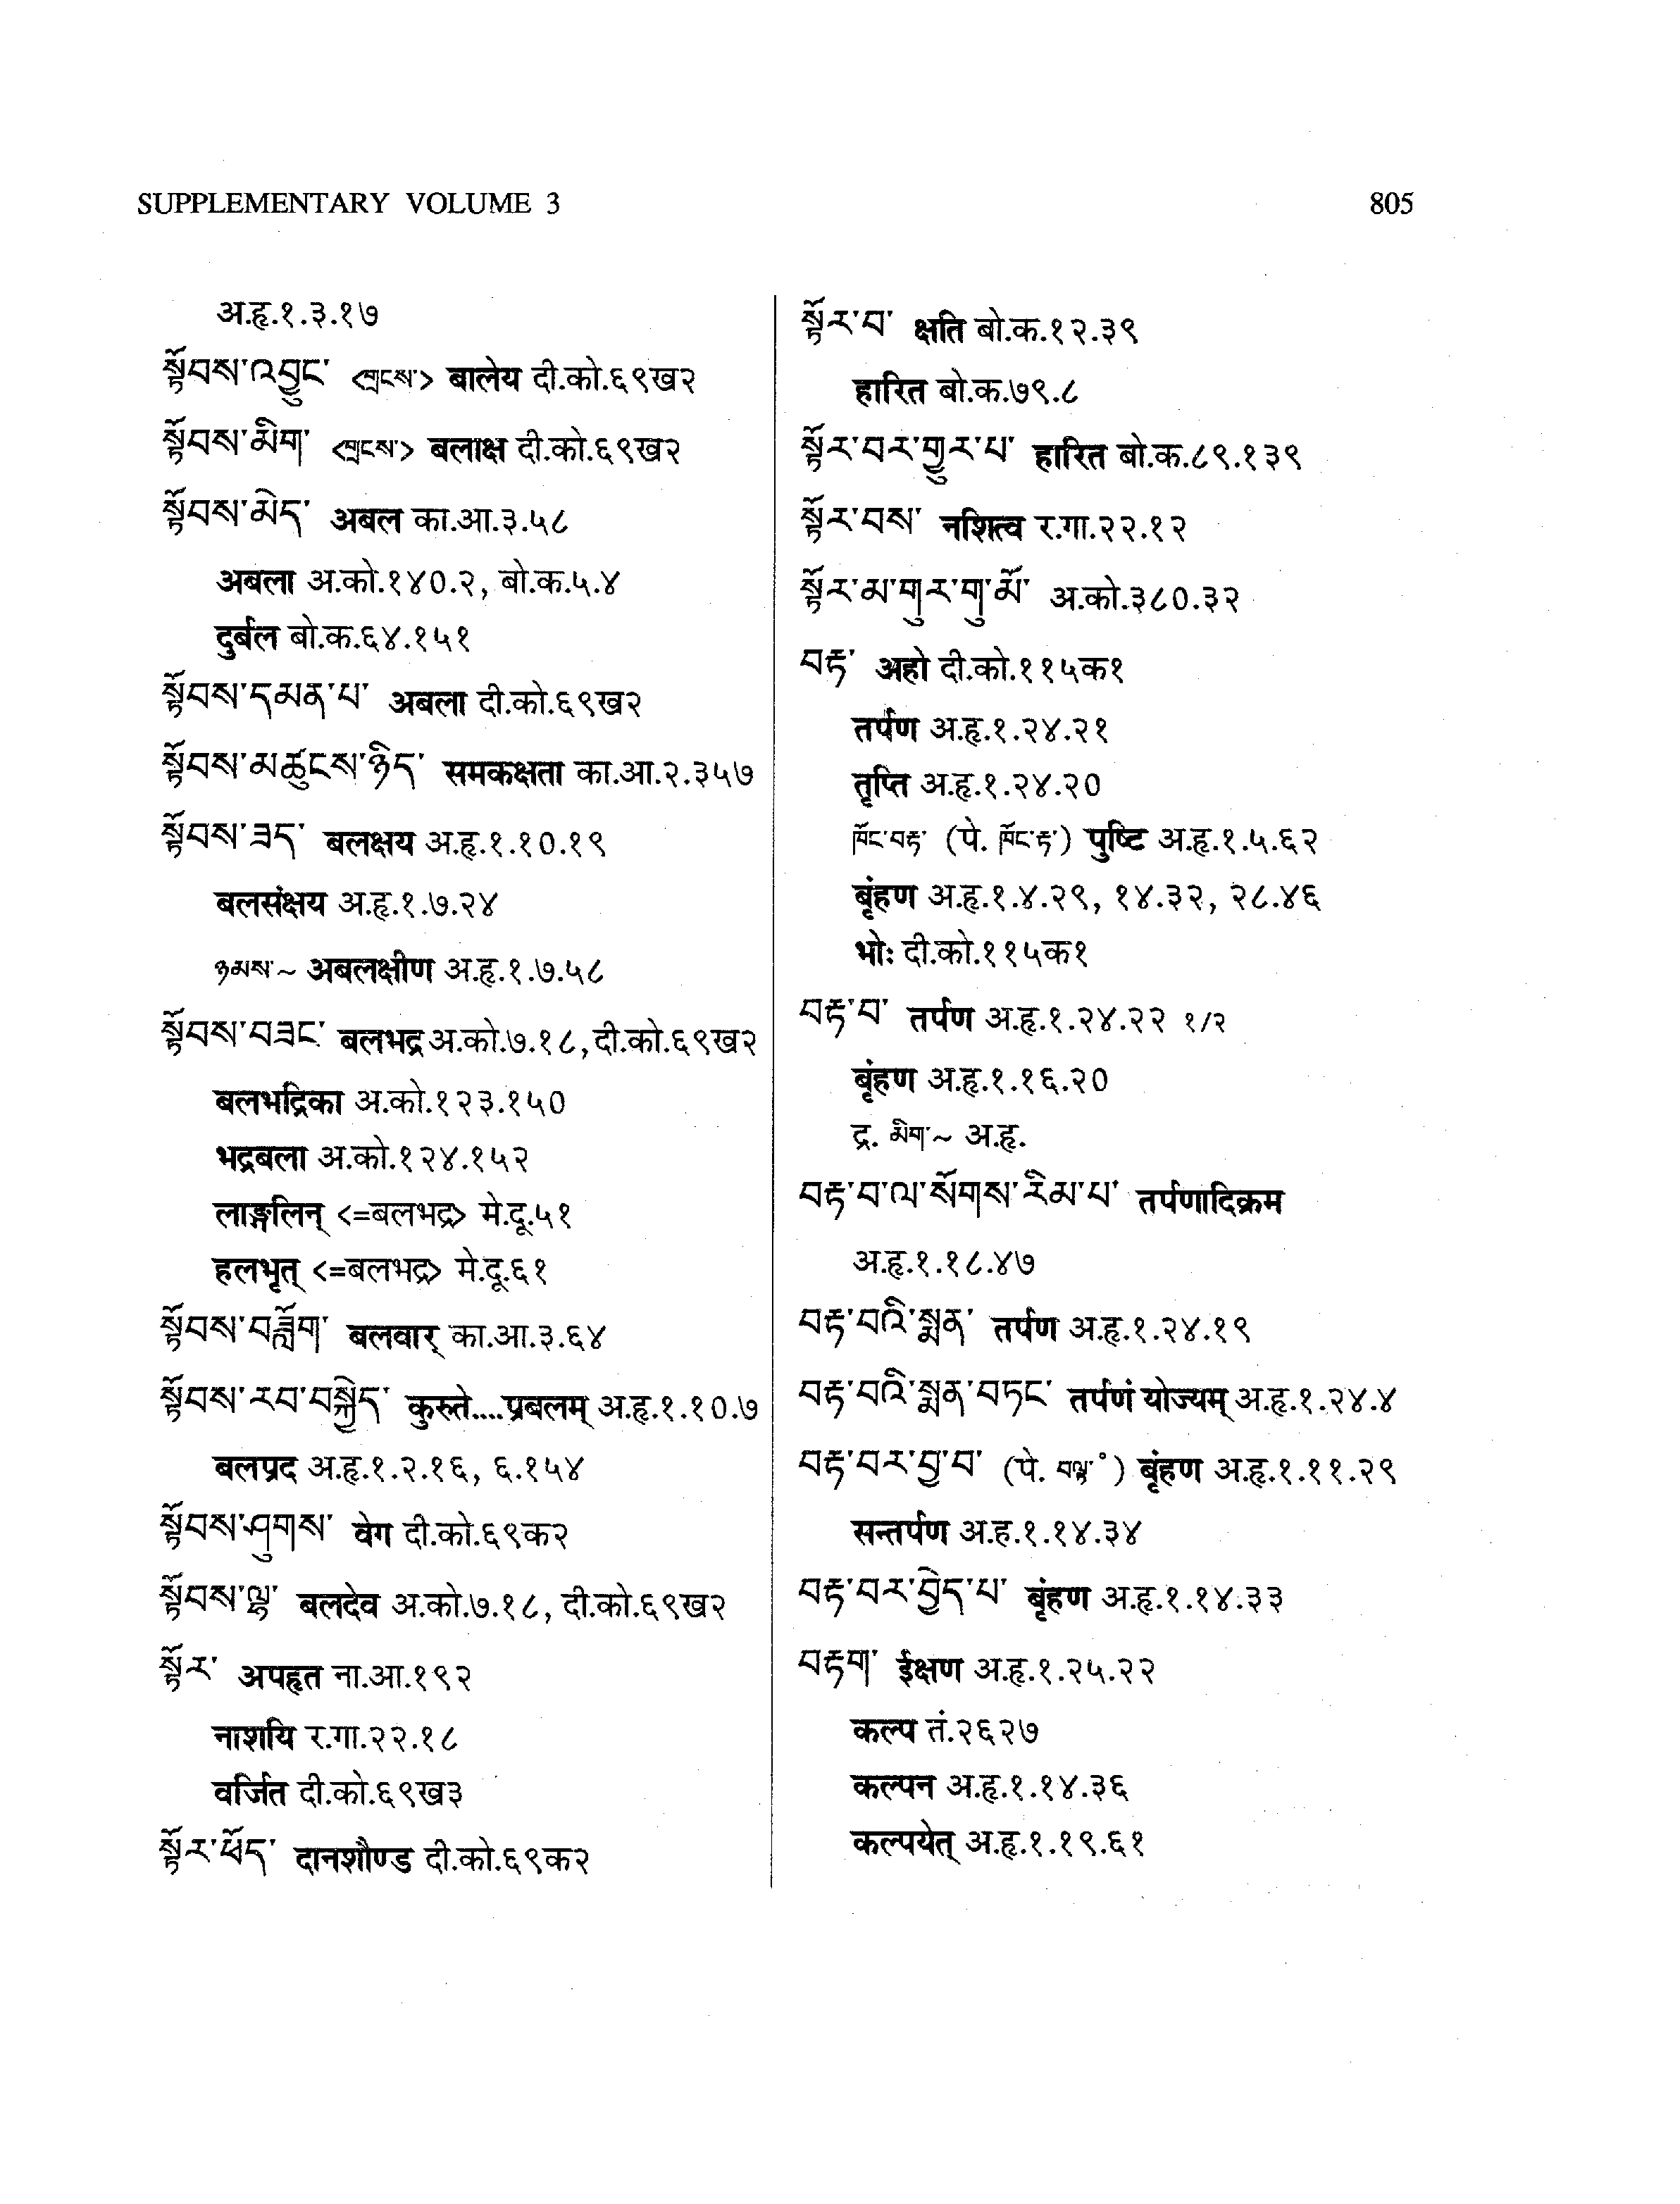 SUPPLEMENTARY VOLUME 3
805
अ.हृ.१.३.१७
སྟོབས་འབྱུང་ <གྲངས་> बालेय दी.को.६९ख२
སྟོབས་མིག་ <གྲངས་> बलाक्ष दी.को.६९ख२
སྟོབས་མེད་ अबल का.आ.३.५८
अबला अ.को.१४०.२, बो.क.५.४
दुर्बल बो.क.६४.१५१
སྟོབས་དམན་པ་ अबला दी.को.६९ख२
སྟོབས་མཚུངས་ཉིད་ समकक्षता का.आ.२.३५७
སྟོབས་ཟད་ बलक्षय अ.हृ.१.१०.१९
बलसंक्षय अ.हृ.१.७.२४
ཉམས་~ अबलक्षीण अ.हृ.१.७.५८
སྟོབས་བཟང་ बलभद्र अ.को.७.१८, दी.को.६९ख२
बलभद्रिका अ.को.१२३.१५०
भद्रबला अ.को.१२४.१५२
लाङ्गलिन् <=बलभद्र> मे.दू.५१
हलभृत् <=बलभद्र> मे.दू.६१
སྟོབས་བཟློག་ बलवार् का.आ.३.६४
སྟོབས་རབ་བསྐྱེད་ कुरुते....प्रबलम् अ.हृ.१.१०.७
बलप्रद अ.हृ.१.२.१६, ६.१५४
སྟོབས་ཤུགས་ वेग दी.को.६९क२
སྟོབས་ལྷ་ बलदेव अ.को.७.१८, दी.को.६९ख२
སྟོར་ अपहृत ना.आ.१९२
नाशयि र.गा.२२.१८
वर्जित दी.को.६९ख३
སྟོར་ཕོད་ दानशौण्ड दी.को.६९क२
སྟོར་བ་ क्षति बो.क.१२.३९
हारित बो.क.७९.८
སྟོར་བར་གྱུར་པ་ हारित बो.क.८९.१३९
སྟོར་བས་ नशित्व र.गा.२२.१२
སྟོར་མ་གུར་གུ་མོ་ अ.को.३८०.३२
བརྟ་ अहो दी.को.११५क१
तर्पण अ.हृ.१.२४.२१
तृप्ति अ.हृ.१.२४.२०
ཁོང་བརྟ་ (पे. ཁོང་རྟ་) पुष्टि अ.हृ.१.५.६२
बृंहण अ.हृ.१.४.२९, १४.३२, २८.४६
भोः दी.को.११५क१
བརྟ་བ་ तर्पण अ.हृ.१.२४.२२ १/२
बृंहण अ.हृ.१.१६.२०
द्र. མིག་~ अ.हृ.
བརྟ་བ་ལ་སོགས་རིམ་པ་ तर्पणादिक्रम
अ.हृ.१.१८.४७
བརྟ་བའི་སྨན་ तर्पण अ.हृ.१.२४.१९
བརྟ་བའི་སྨན་བཏང་ तर्पणं योज्यम् अ.हृ.१.२४.४
བརྟ་བར་བྱ་བ་ (पे. བལྟ་°) बृंहण अ.हृ.१.११.२९
सन्तर्पण अ.ह.१.१४.३४
བརྟ་བར་བྱེད་པ་ बृंहण अ.हृ.१.१४.३३
བརྟག་ ईक्षण अ.हृ.१.२५.२२
कल्प तं.२६२७
कल्पन अ.हृ.१.१४.३६
कल्पयेत् अ.हृ.१.१९.६१